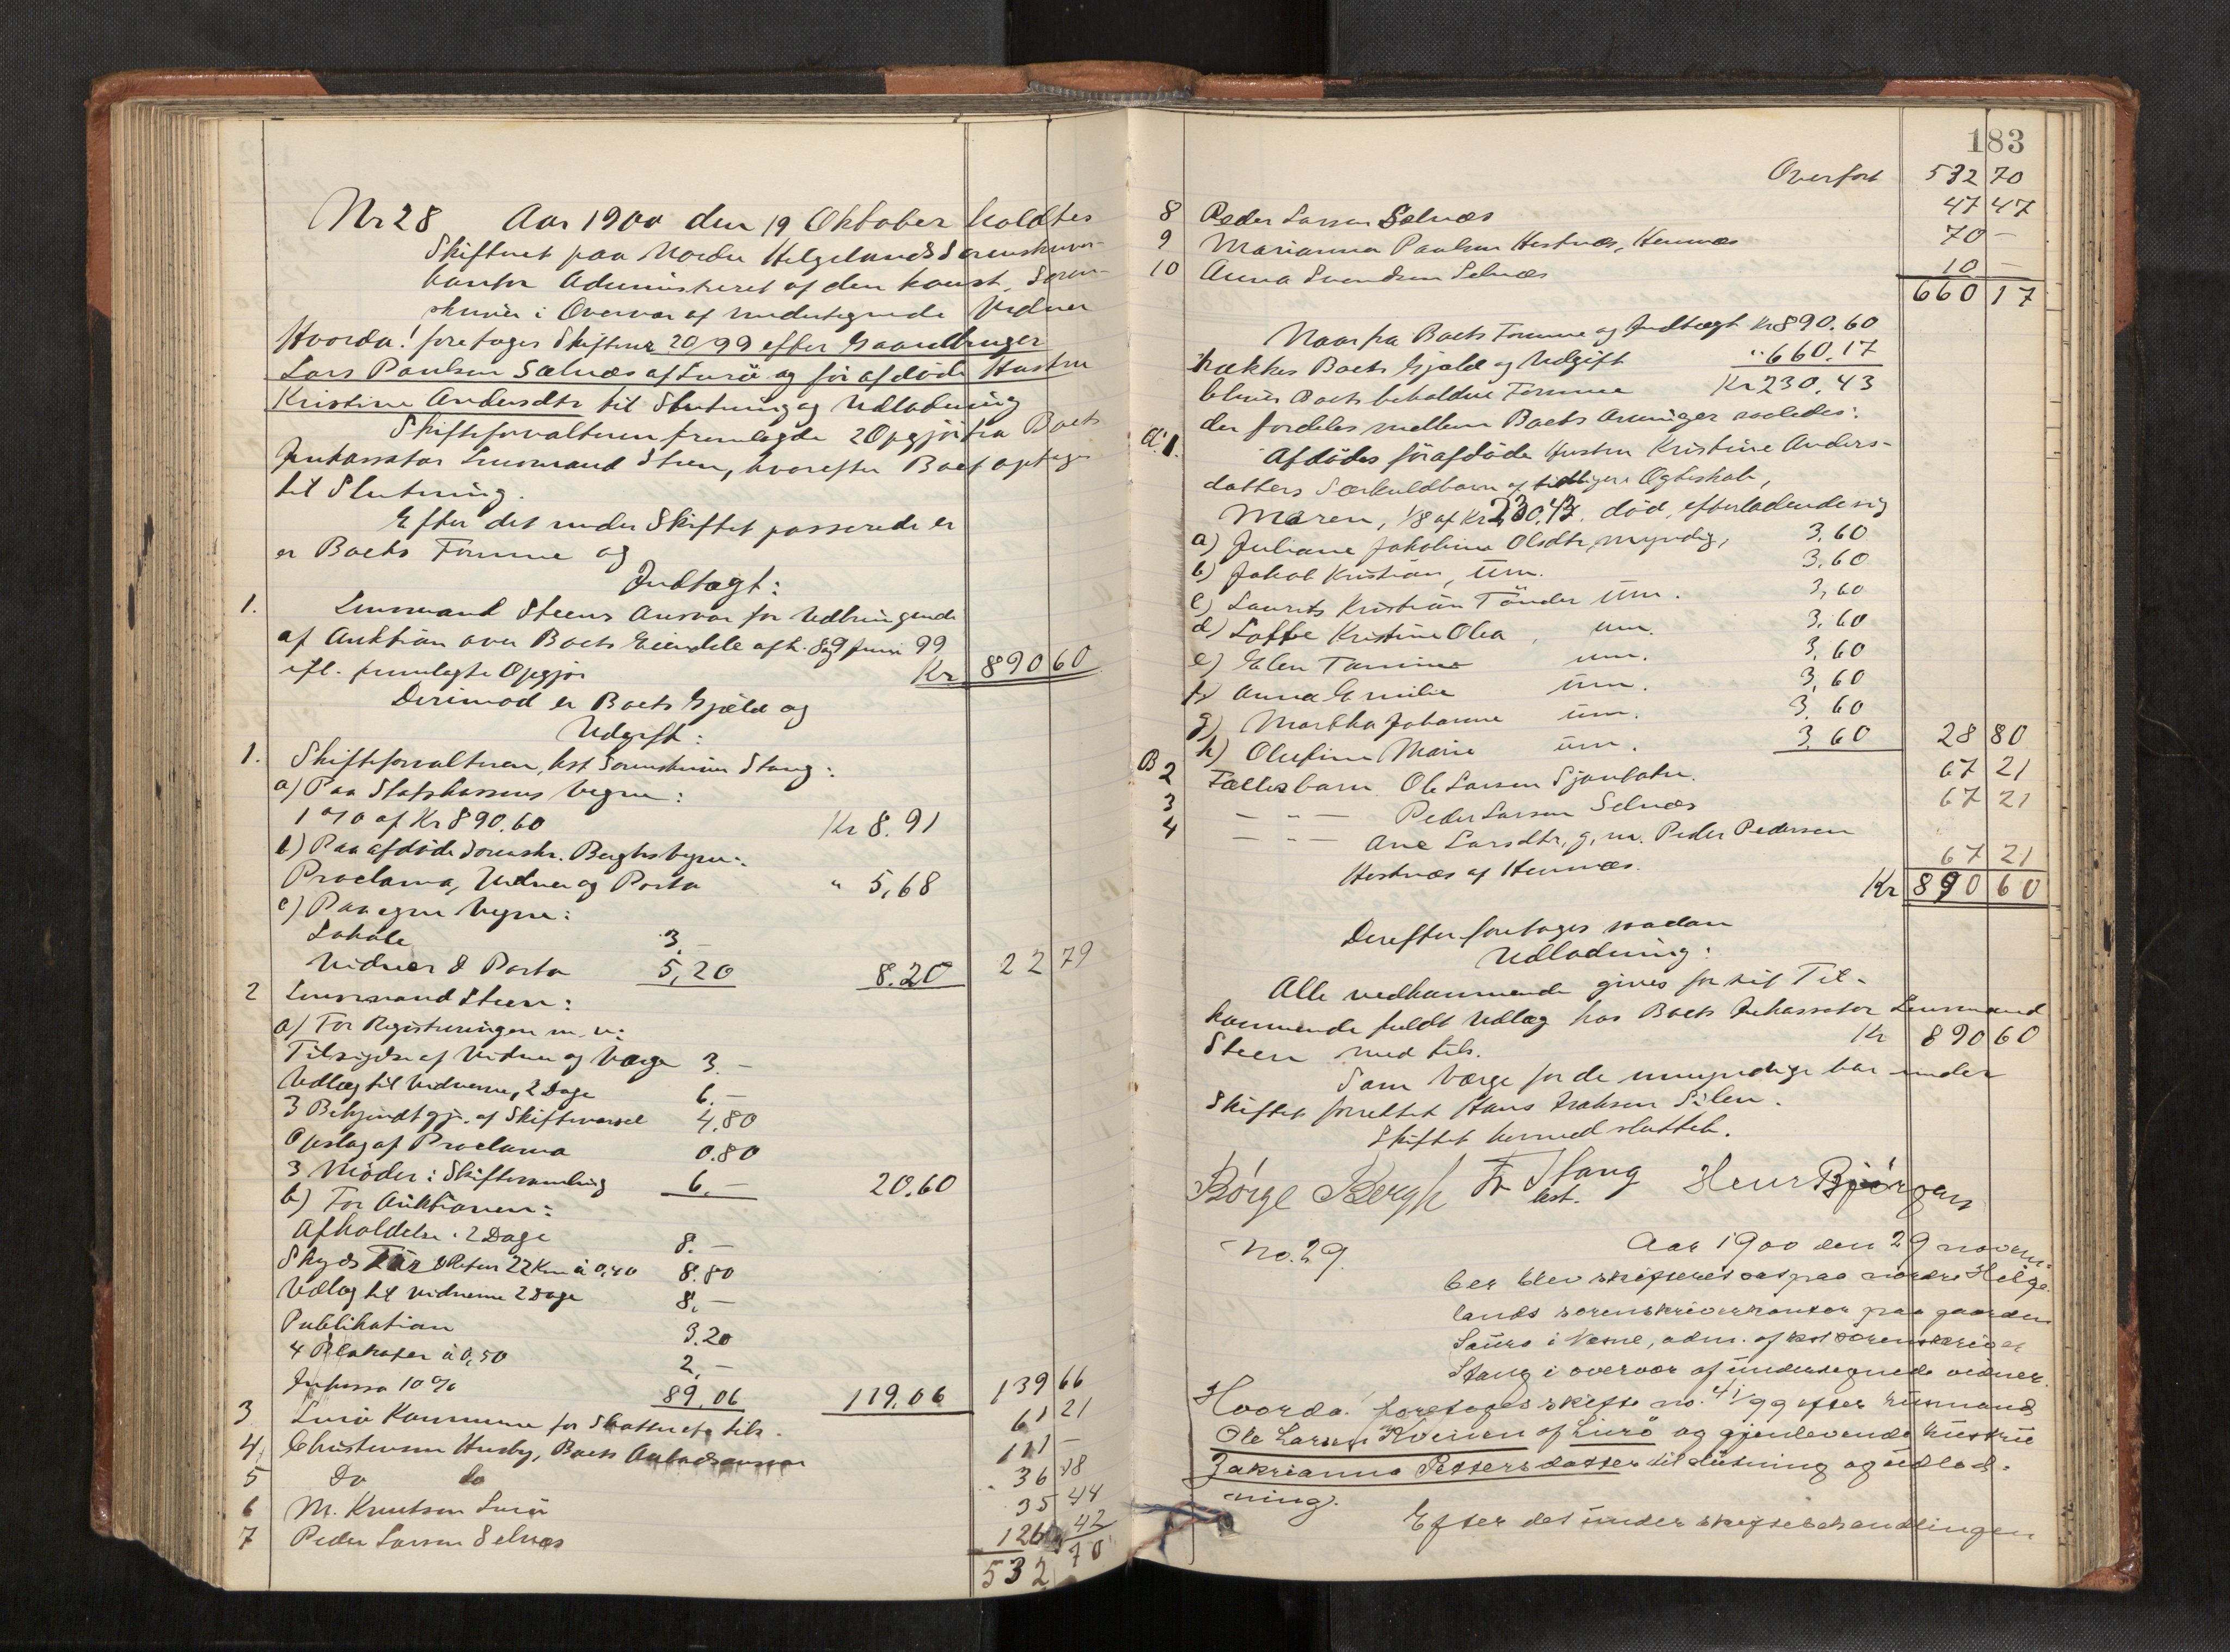 Nr 28 Aar 1900 den 19 Oktober holdtes
Skifteret paa Nordre Helgelands Sorenskriver-
kontor Administreret af den konst. Soren-
skriver i Overvær af undertegnede Vidner
Hvorda! foretoges Skifterne 20/99 efter Gaardbruger
Lars Paulsen Selnæs af Lurö og för afdöde Hustru
Kristine Andersdtr til Slutning og Udlodning
Skifteforvalteren fremlagde 2 Opgjör fra Boets
Inkassator Lensmand Steen, hvorefter Boet optoges
til Slutning.
Efter det under Skiftet passerede er
er Boets Formue og
Indtægt:
1. Lensmand Steens Ansvar for Udbringende
af Auktion over Boets Eiendele afh. 8 og 9 Juni 99
ifl. fremlagte Opgjör Kr 890 60
Derimod er Boets Gjæld og
Udgift:
1. Skifteforvalteren, kst Sorenskriver Stang:
a) Paa Statskassens Vegne:
1 % af Kr 890.60 Kr 8.91
b) Paa afdöde Sorenskr. Berghs Vegne:
Proclama, Vidner og Porto " 5,68
c) Paa egne Vegne:
Lokale 3,–
Vidner & Porto 5,20 8.20 22 79
2 Lensmand Steen:
a) For Registreringen m. v:
Tilsigelse af Vidner og Værge 3.–
Udlæg til Vidnerne, 2 Dage 6.–
3 Bekjendtgj. af Skiftevarsel 4,80
Opslag af Proclama 0.80
3 Möder i Skiftesamling 6.– 20.60
b) For Auktionen:
Afholdelse 2 Dage 8.–
Skyds Tur & Retur 22 Km à 0,40 8.80
Udlæg til Vidnerne 2 Dage 8.–
Publikation 3.20
4 Plakater à 0,50 2,–
Inkasso 10 % 89.06 119,06 139 66
3 Lurö Kommune for Skatter efr tils. 61 21
4 Christensen Husby, Boets Anladsansvar 111 –
5 Do do 36 18
6 M. Knutsen Lurö 35 44
7 Peder Larsen Selnæs 126 42
532 70
183
Overfört 532 70
8 Peder Larsen Selnæs 47 47
9 Marianna Paulsen Hestnæs, Hemnæs 70 –
10 Anna Svendsen Selnæs 10 –
660 17
Naar fra Boets Formue og Indtægt Kr 890.60
trækkes Boets Gjæld og Udgift " 660.17
blives Boets beholdne Formue Kr 230.43
der fordeles mellem Boets Arvinger saaledes:
A. 1. Afdödes förafdöde Hustru Kristine Anders-
datters Særkuldbarn af tidligere Ægteskab,
Maren, 1/8 af Kr 230.43. död, efterladende sig
a) Juliane Jakobine Olsdtr, myndig, 3,60
b) Jakob Kristian, um. 3,60
c) Laurits Kristian Tönder um. 3,60
d) Loffe Kristine Olea, um. 3.60
e) Elen Tomine um. 3,60
f) Anna Emilie um. 3,60
g) Martha Johanne um. 3,60
h) Olufine Marie um. 3,60 28 80
B 2 Fællesbarn Ole Larsen Sjonbotn. 67 21
3 – " – Peder Larsen Selnæs 67 21
4 – " – Ane Larsdtr, g. m. Peder Pedersen
Hestnæs af Hemnæs. 67 21
Kr 890 60
Derefter foretoges saadan
Udlodning:
Alle vedkommende gives for sit Til-
kommende fuldt Udlæg hos Boets Inkassator Lensmand
Steen med tils. Kr 890 60
Som Værge for de umyndige har under
Skiftet forrettet Hans Isaksen Silen.
Skiftet hermed sluttet.
Börge Bergh Fr Stang Henr Bjørgens
kst.
No. 29. Aar 1900 den 29 novem-
ber blev skifteret sat paa nordre Helge-
lands sorenskriverkontor paa gaarden
Saura i Nesne, adm. af kst sorenskriver
Stang i overvær af undertegnede vidner.
Hvorda! foretoges skifte no. 41/99 efter husmand
Ole Larsen Kvernen af Lurö og gjenlevende hustru
Zakrianna Pettersdatter til slutning og udlod-
ning.
Efter det under skiftebehandlingen